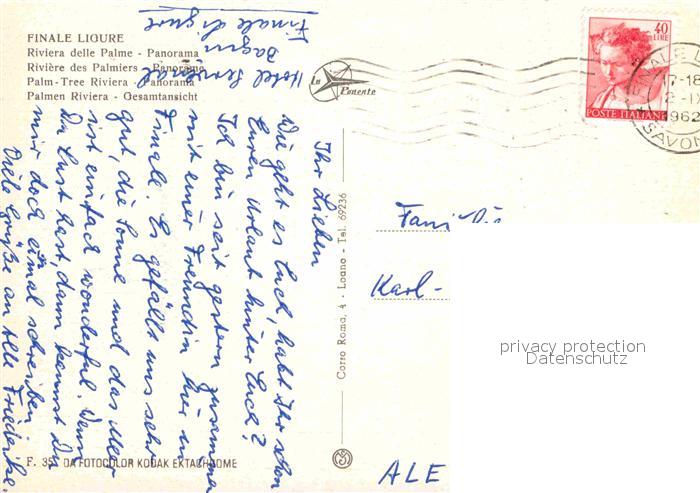 FINALE LIGURE
Riviera delle Palme - Panorama
Rivière des Palmiers - Panorama
Palm-Tree Riviera - Panorama
Palmen Riviera - Gesamtansicht
Hotel
Bagni
Finale Ligure
La Ponente
40
LIRE
POSTE ITALIANE
FINALE L
17-18
2-IX
1962
SAVON
Ihr Lieben
Wie geht es Euch, habt Ihr schon
Euren Urlaub hinter Euch?
Ich bin seit gestern zusammen
mit einer Freundin hier in
Finale. Es gefällt uns sehr
gut, die Sonne und das Meer
ist einfach wonderful. Wenn
Du Lust hast, dann kannst Du
mir doch mal schreiben
Viele Grüße an Alle Friederike.
Corso Roma, 4 - Loano - Tel. 69236
Fam
Karl-
privacy protection
Datenschutz
ALE
F. 35 DA FOTOCOLOR KODAK EKTACHROME